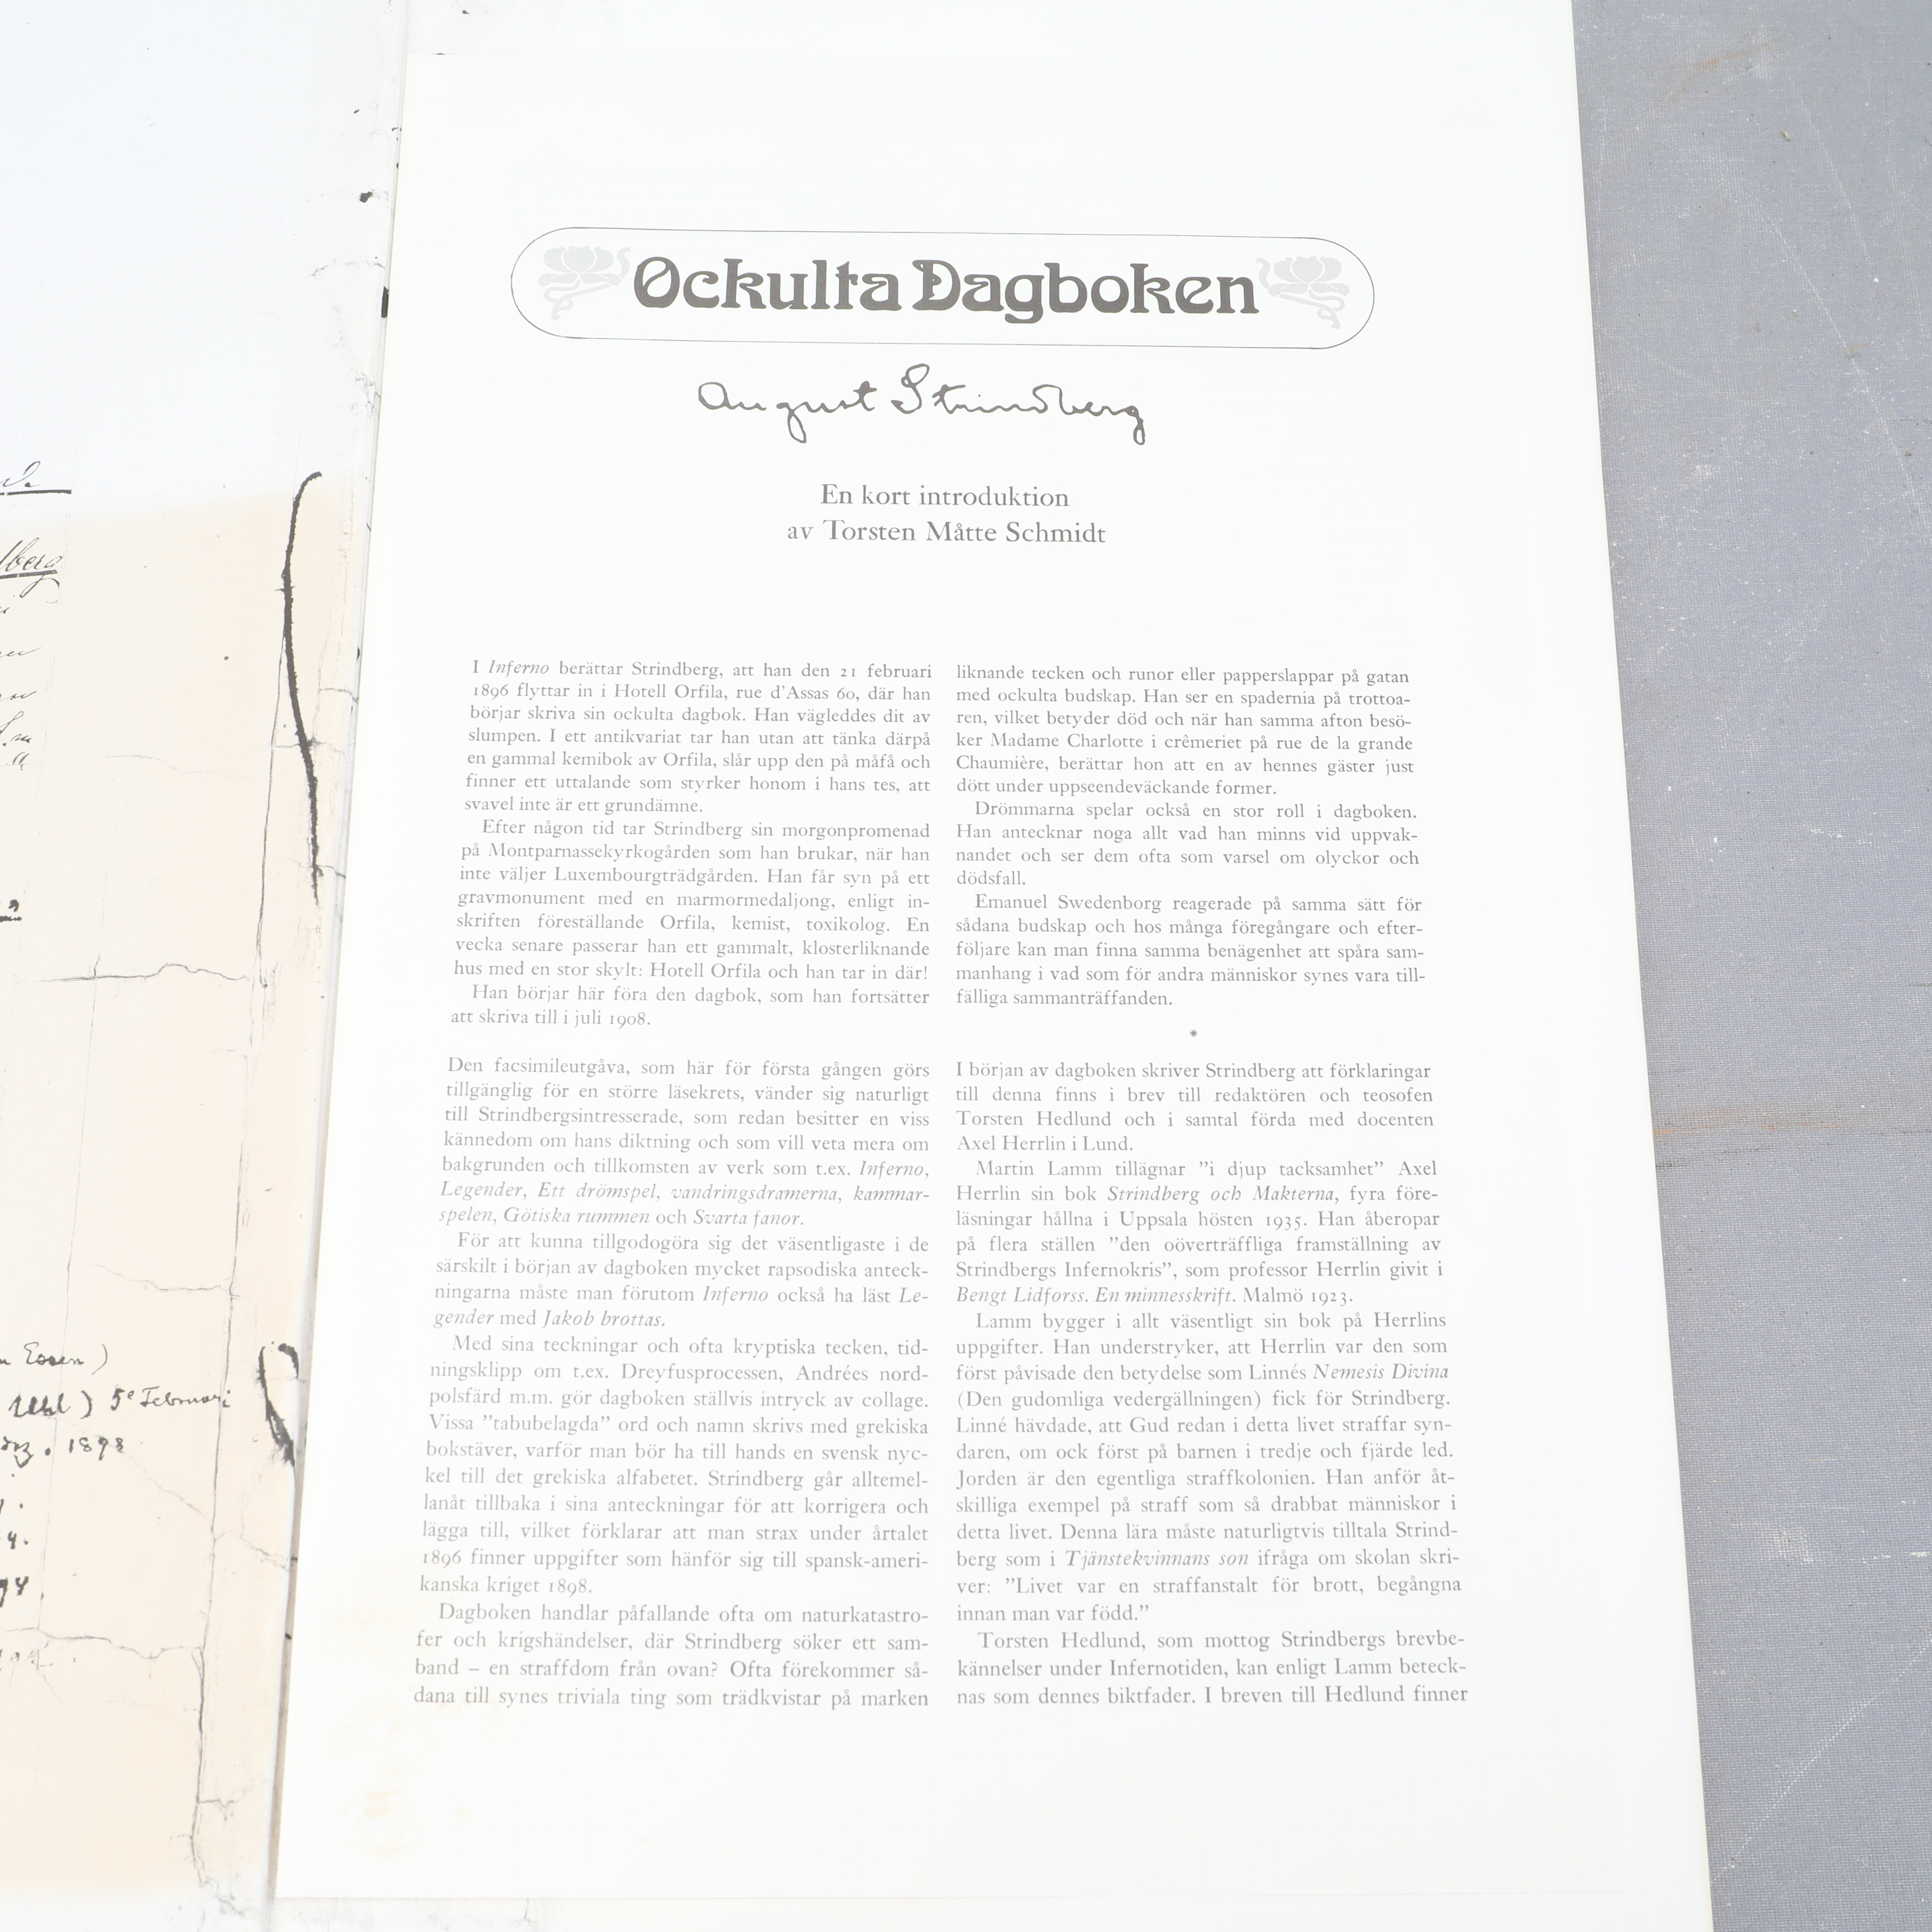 Ockulta Dagboken
August Strindberg
En kort introduktion
av Torsten Måtte Schmidt
I Inferno berättar Strindberg, att han den 21 februari
1896 flyttar in i Hotell Orfila, rue d'Assas 60, där han
börjar skriva sin ockulta dagbok. Han vägleddes dit av
slumpen. I ett antikvariat tar han utan att tänka därpå
en gammal kemibok av Orfila, slår upp den på måfå och
finner ett uttalande som styrker honom i hans tes, att
svavel inte är ett grundämne.
Efter någon tid tar Strindberg sin morgonpromenad
på Montparnassekyrkogården som han brukar, när han
inte väljer Luxembourgträdgården. Han får syn på ett
gravmonument med en marmormedaljong, enligt in-
skriften föreställande Orfila, kemist, toxikolog. En
vecka senare passerar han ett gammalt, klosterliknande
hus med en stor skylt: Hotell Orfila och han tar in där!
Han börjar här föra den dagbok, som han fortsätter
att skriva till i juli 1908.
Den facsimileutgåva, som här för första gången görs
tillgänglig för en större läsekrets, vänder sig naturligt
till Strindbergsintresserade, som redan besitter en viss
kännedom om hans diktning och som vill veta mera om
bakgrunden och tillkomsten av verk som t.ex. Inferno,
Legender, Ett drömspel, vandringsdramerna, kammar-
spelen, Götiska rummen och Svarta fanor.
För att kunna tillgodogöra sig det väsentligaste i de
särskilt i början av dagboken mycket rapsodiska anteck-
ningarna måste man förutom Inferno också ha läst Le-
gender med Jakob brottas.
Med sina teckningar och ofta kryptiska tecken, tid-
ningsklipp om t.ex. Dreyfusprocessen, Andrées nord-
polsfärd m.m. gör dagboken ställvis intryck av collage.
Vissa ”tabubelagda” ord och namn skrivs med grekiska
bokstäver, varför man bör ha till hands en svensk nyc-
kel till det grekiska alfabetet. Strindberg går alltemel-
lanåt tillbaka i sina anteckningar för att korrigera och
lägga till, vilket förklarar att man strax under årtalet
1896 finner uppgifter som hänför sig till spansk-ameri-
kanska kriget 1898.
Dagboken handlar påfallande ofta om naturkatastro-
fer och krigshändelser, där Strindberg söker ett sam-
band – en straffdom från ovan? Ofta förekommer så-
dana till synes triviala ting som trädkvistar på marken
liknande tecken och runor eller papperslappar på gatan
med ockulta budskap. Han ser en spadernia på trottoa-
ren, vilket betyder död och när han samma afton besö-
ker Madame Charlotte i crêmeriet på rue de la grande
Chaumière, berättar hon att en av hennes gäster just
dött under uppseendeväckande former.
Drömmarna spelar också en stor roll i dagboken.
Han antecknar noga allt vad han minns vid uppvak-
nandet och ser dem ofta som varsel om olyckor och
dödsfall.
Emanuel Swedenborg reagerade på samma sätt för
sådana budskap och hos många föregångare och efter-
följare kan man finna samma benägenhet att spåra sam-
manhang i vad som för andra människor synes vara till-
fälliga sammanträffanden.
*
I början av dagboken skriver Strindberg att förklaringar
till denna finns i brev till redaktören och teosofen
Torsten Hedlund och i samtal förda med docenten
Axel Herrlin i Lund.
Martin Lamm tillägnar ”i djup tacksamhet” Axel
Herrlin sin bok Strindberg och Makterna, fyra före-
läsningar hållna i Uppsala hösten 1935. Han åberopar
på flera ställen ”den oöverträffliga framställning av
Strindbergs Infernokris”, som professor Herrlin givit i
Bengt Lidforss. En minnesskrift. Malmö 1923.
Lamm bygger i allt väsentligt sin bok på Herrlins
uppgifter. Han understryker, att Herrlin var den som
först påvisade den betydelse som Linnés Nemesis Divina
(Den gudomliga vedergällningen) fick för Strindberg.
Linné hävdade, att Gud redan i detta livet straffar syn-
daren, om ock först på barnen i tredje och fjärde led.
Jorden är den egentliga straffkolonien. Han anför åt-
skilliga exempel på straff som så drabbat människor i
detta livet. Denna lära måste naturligtvis tilltala Strind-
berg som i Tjänstekvinnans son ifråga om skolan skri-
ver: ”Livet var en straffanstalt för brott, begångna
innan man var född.”
Torsten Hedlund, som mottog Strindbergs brevbe-
kännelser under Infernotiden, kan enligt Lamm beteck-
nas som dennes biktfader. I breven till Hedlund finner
Essen)
) 5e Februari
. 1898